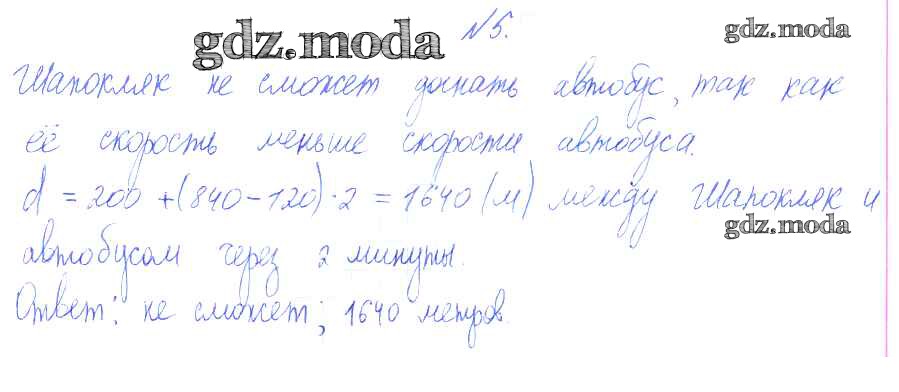 №5.
gdz.moda
gdz.moda
Шапокляк не сможет догнать автобус, так как
её скорость меньше скорости автобуса.
d = 200 + (840 - 120) · 2 = 1640 (м) между Шапокляк и
gdz.moda
автобусом через 2 минуты.
Ответ: не сможет; 1640 метров.